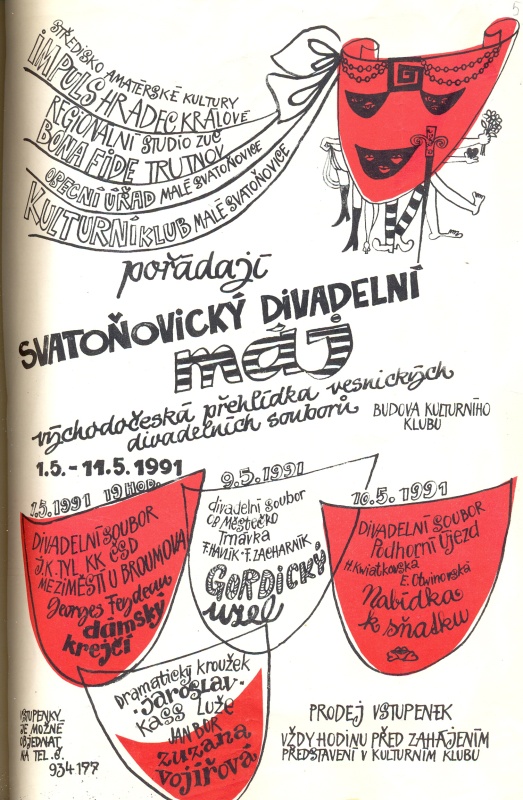 STŘEDISKO AMATÉRSKÉ KULTURY
IMPULS HRADEC KRÁLOVÉ
REGIONÁLNÍ STUDIO ZUČ
BONA FIDE TRUTNOV
OBECNÍ ÚŘAD MALÉ SVATOŇOVICE
KULTURNÍ KLUB MALÉ SVATOŇOVICE
pořádají
SVATOŇOVICKÝ DIVADELNÍ
máj
východočeská přehlídka vesnických
divadelních souborů
BUDOVA KULTURNÍHO
KLUBU
1.5. - 11.5. 1991
1.5.1991 19 HOD.
DIVADELNÍ SOUBOR
J.K. TYL KK ČSD
MEZIMĚSTÍ U BROUMOVA
Georges Feydeau
dámský
krejčí
9.5.1991
divadelní soubor
OB Městečko
Trnávka
F. HAVLÍK - F. ZACHARNÍK
GORDICKÝ
uzel
10.5.1991
DIVADELNÍ SOUBOR
Podhorní Újezd
H. Kwiatkovska
E. Otwinovska
Nabídka
k sňatku
Dramatický kroužek
"Jaroslav"
KaSS Luže
JAN BOR
zuzana
Vojířová
VSTUPENKY
JE MOŽNÉ
OBJEDNAT
NA TEL. Č.
934 177
PRODEJ VSTUPENEK
VŽDY HODINU PŘED ZAHÁJENÍM
PŘEDSTAVENÍ V KULTURNÍM KLUBU